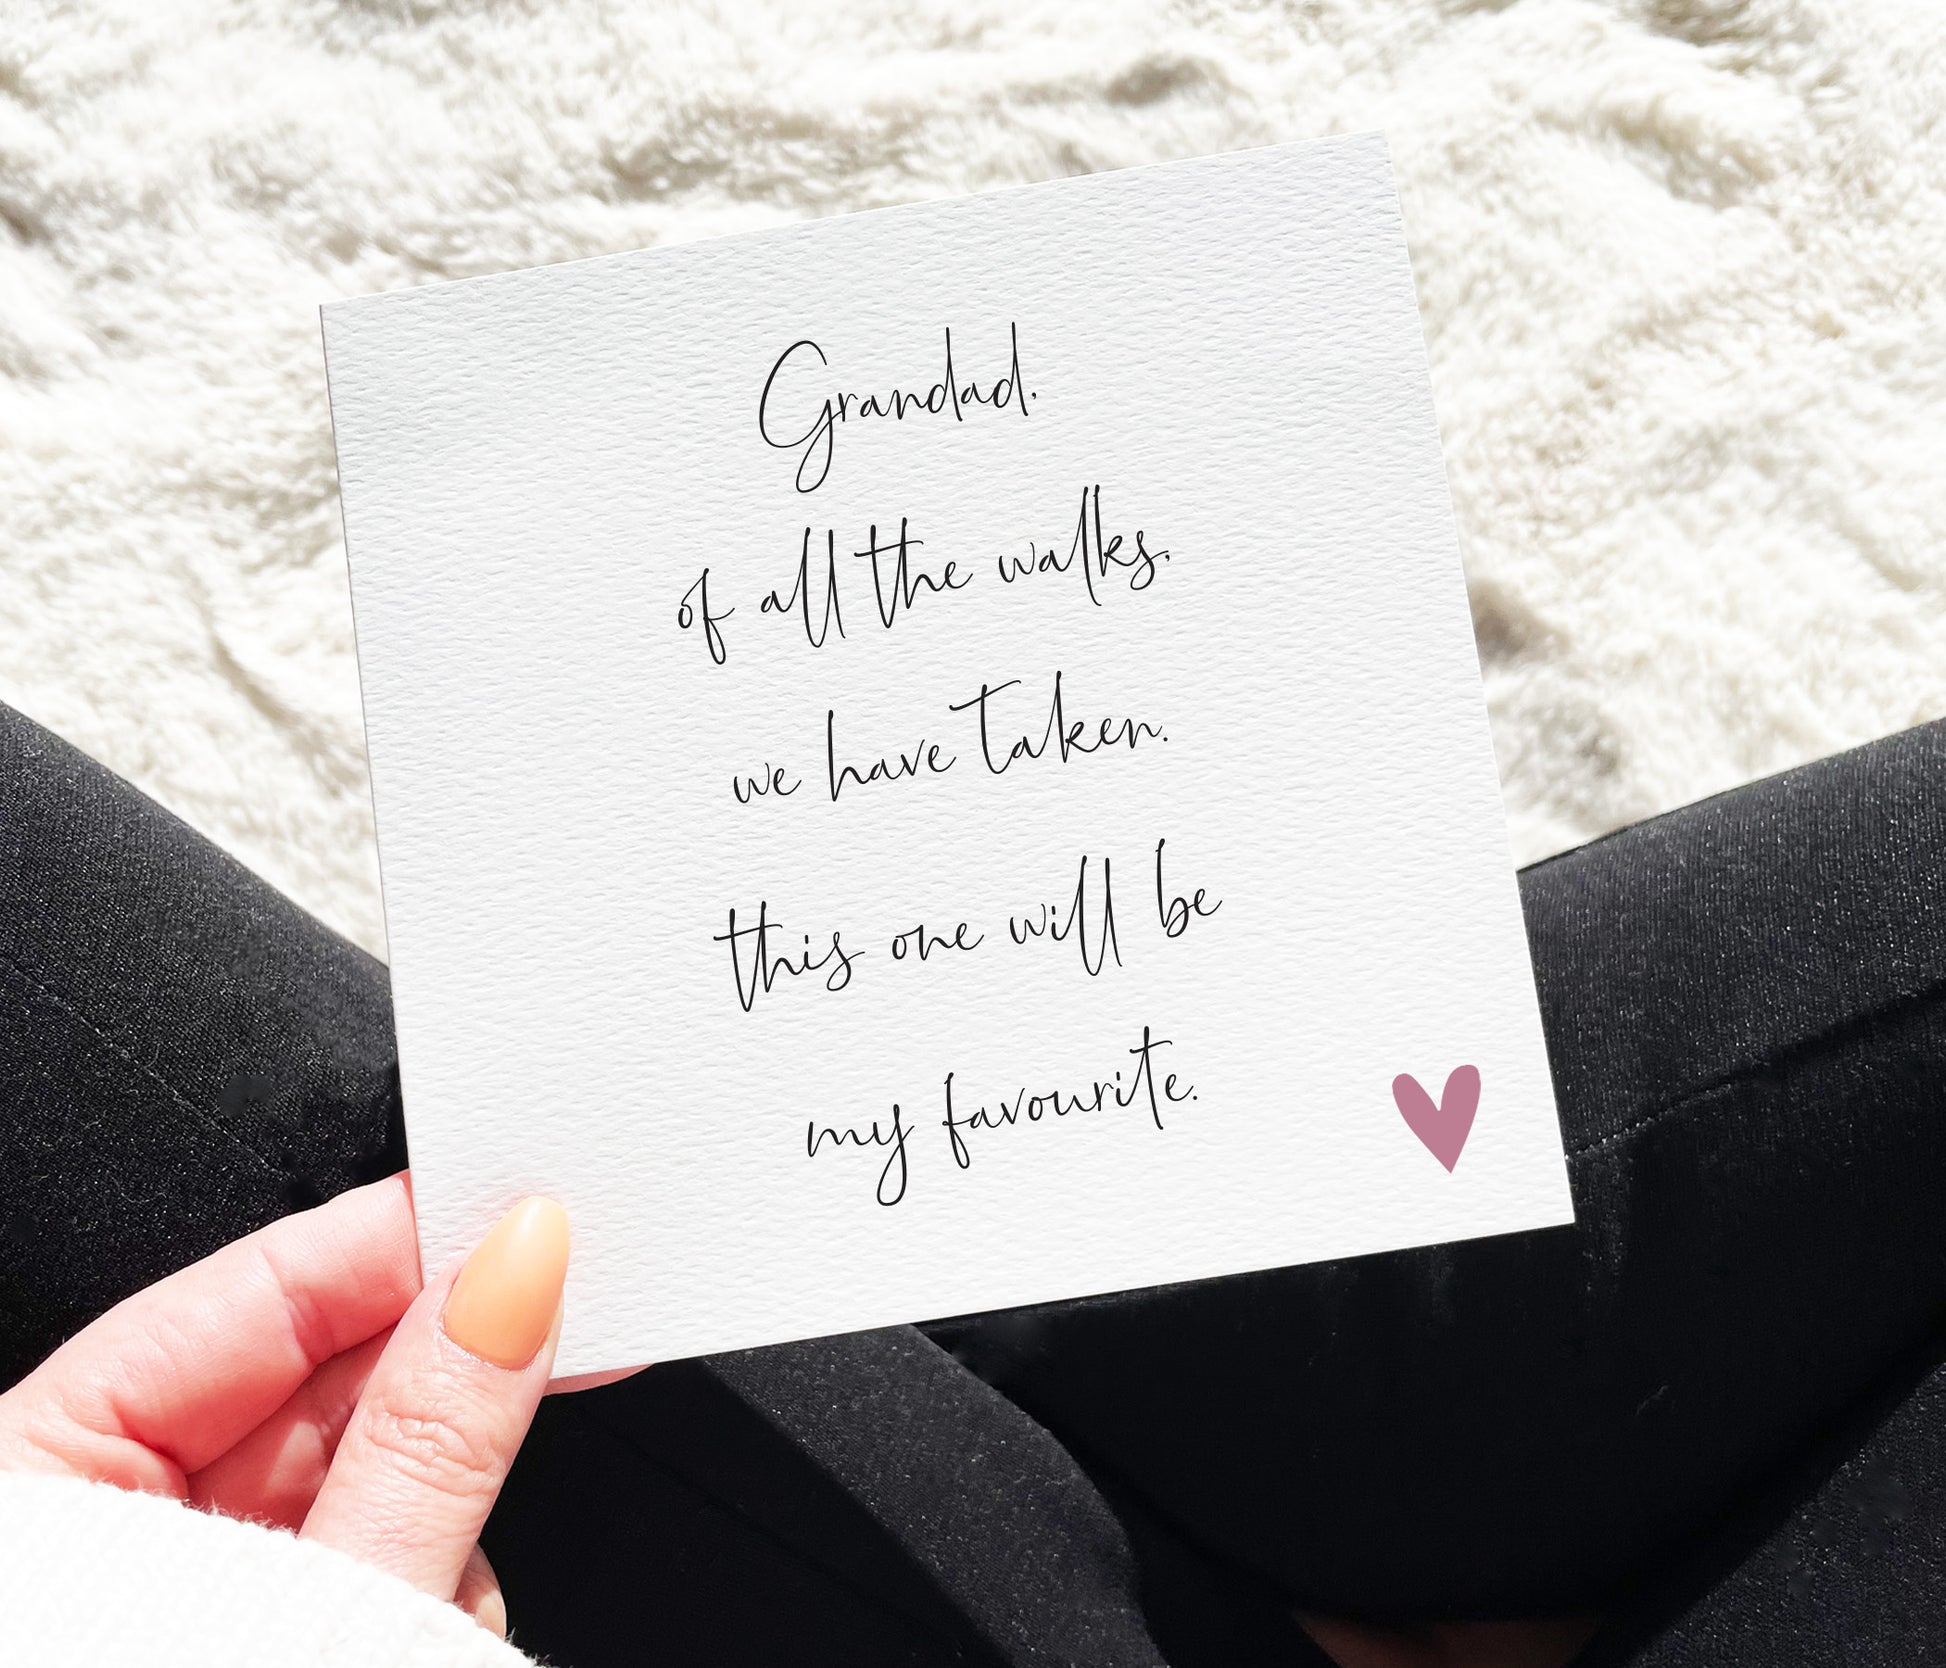 Grandad,
of all the walks,
we have taken.
this one will be
my favourite.